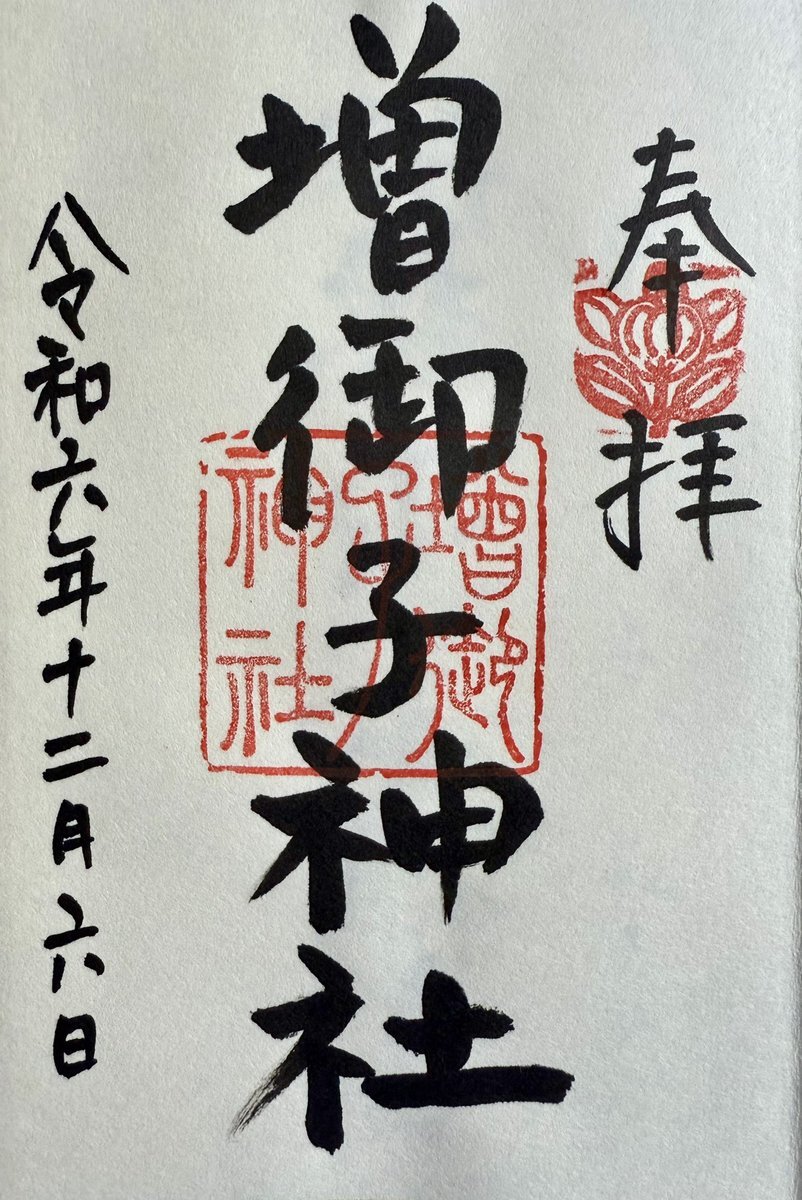 奉拝
増御子神社
増御子神社
令和六年十二月六日